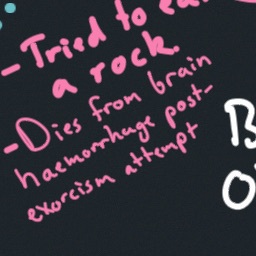 - Tried to ea
a rock.
- Dies from brain
haemorrhage post-
exorcism attempt
B
O